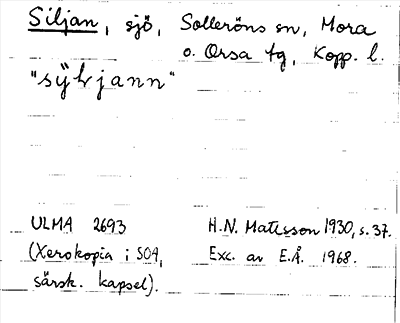 Siljan, sjö, Solleröns sn, Mora
o. Orsa tg, Kopp. l.
"sÿljann"
ULMA 2693
(Xerokopia i SOA,
särsk. kapsel).
H.N. Matsson 1930, s. 37.
Exc. av E.Å. 1968.